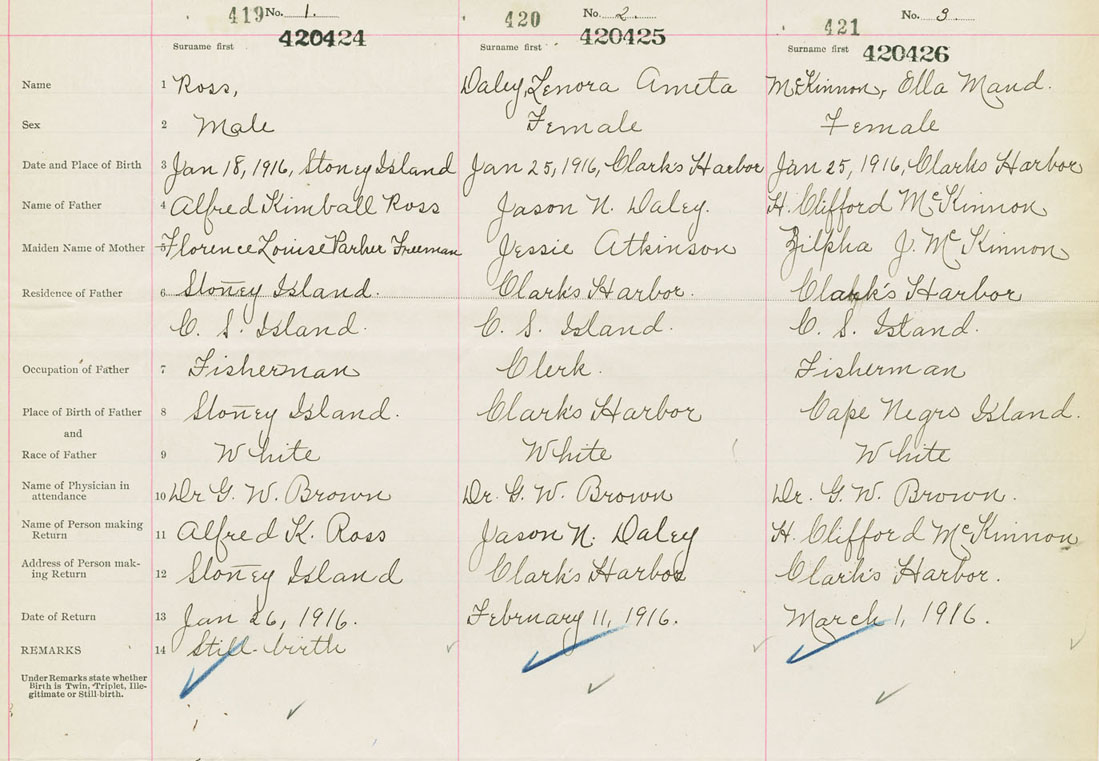 419 No. 1. 420 No. 2. 421 No. 3.
420424 420425 420426
Surname first Surname first Surname first
Name 1 Ross, Daley, Lenora Ameta McKinnon, Ella Maud.
Sex 2 Male Female Female
Date and Place of Birth 3 Jan 18, 1916, Stoney Island Jan 25, 1916, Clark's Harbor Jan 25, 1916, Clark's Harbor
Name of Father 4 Alfred Kimball Ross Jason N. Daley. H. Clifford McKinnon
Maiden Name of Mother 5 Florence Louise Parker Freeman Jessie Atkinson Zilpha J. McKinnon
Residence of Father 6 Stoney Island. Clark's Harbor. Clark's Harbor
C. S. Island. C. S. Island. C. S. Island.
Occupation of Father 7 Fisherman Clerk. Fisherman
Place of Birth of Father 8 Stoney Island. Clark's Harbor Cape Negro Island.
and
Race of Father 9 White White White
Name of Physician in attendance 10 Dr G. W. Brown Dr. G. W. Brown Dr. G. W. Brown.
Name of Person making Return 11 Alfred K. Ross Jason N. Daley H. Clifford McKinnon
Address of Person mak-ing Return 12 Stoney Island Clark's Harbor Clark's Harbor.
Date of Return 13 Jan 26, 1916. February 11, 1916. March 1, 1916.
REMARKS 14 Still-birth
Under Remarks state whether
Birth is Twin, Triplet, Ille-
gitimate or Still-birth.